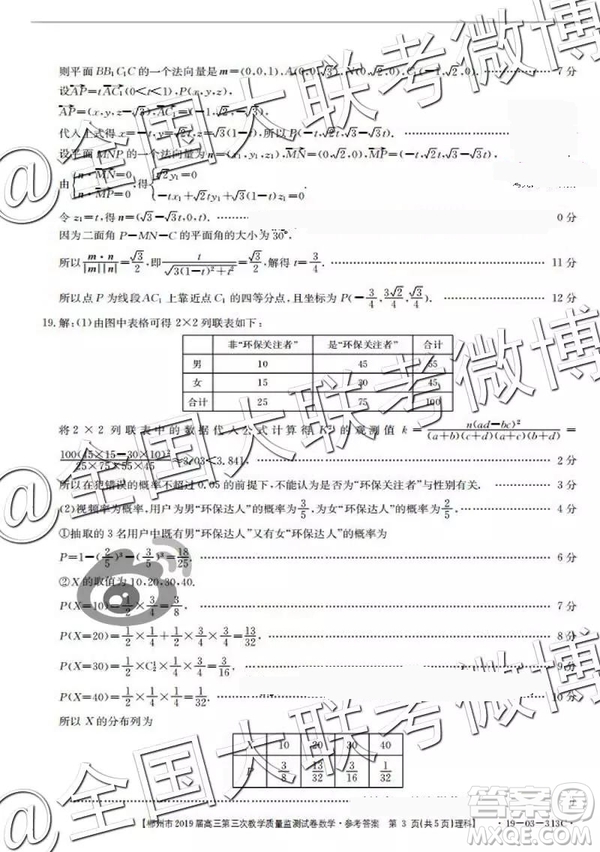 则平面 BB₁C₁C 的一个法向量是 m=(0,0,1),A(0,0,√3),N(0,√2,0),C₁(-1,√2,0). 7 分
设AP=tAC₁(0<t<1),P(x,y,z),
AP=(x,y,z-√3),AC₁=(-1,√2,-√3)
代入上式得 x=-t,y=√2t,z=√3-√3t,所以 P(-t,√2t,√3-√3t).
设平面 MNP 的一个法向量为 n=(x₁,y₁,z₁),MN=(0,√2,0),
由{n·MN=0, n·MP=0, 得{√2y₁=0, -tx₁+√2ty₁+(√3-√3t)z₁=0
令 z₁=t,得 n=(√3-√3t,0,t) 0 分
因为二面角 P-MN-C 的平面角的大小为 30°,
所以|m·n|/|m||n|=√3/2,即t/√(3(1-t)²+t²)=√3/2,解得 t=3/4. 11 分
所以点 P 为线段 AC₁ 上靠近点 C₁ 的四等分点,且坐标为 P(-3/4,3√2/4,√3/4) 12 分
19.解:(1)由图中表格可得 2×2 列联表如下:
非“环保关注者” 是“环保关注者” 合计
男 10 45 55
女 15 30 45
合计 25 75 100
将 2×2 列联表中的数据代入公式计算得 K² 的观测值 k=n(ad-bc)²/(a+b)(c+d)(a+c)(b+d)=
100(45×15-30×10)²/25×75×55×45≈3.03<3.841, 2 分
所以在犯错误的概率不超过 0.05 的前提下,不能认为是否为“环保关注者”与性别有关.
(2)视频率为概率,用户为男“环保达人”的概率为3/5,为女“环保达人”的概率为2/5, 4 分
①抽取的 3 名用户中既有男“环保达人”又有女“环保达人”的概率为
P=1-(2/5)³-(3/5)³=18/25; 6 分
②X 的取值为 10,20,30,40.
P(X=10)=1/2×3/4=3/8, 7 分
P(X=20)=1/2×1/4+1/2×3/4×3/4=13/32, 8 分
P(X=30)=1/2×C₂¹×1/4×3/4=3/16, 9 分
P(X=40)=1/2×1/4×1/4=1/32. 10 分
所以 X 的分布列为
X 10 20 30 40
P 3/8 13/32 3/16 1/32
【郴州市 2019 届高三第三次教学质量监测试卷数学·参考答案 第 3 页(共 5 页)理科】 ·19-03-313C·
@全国大联考微博
@全国大联考微博